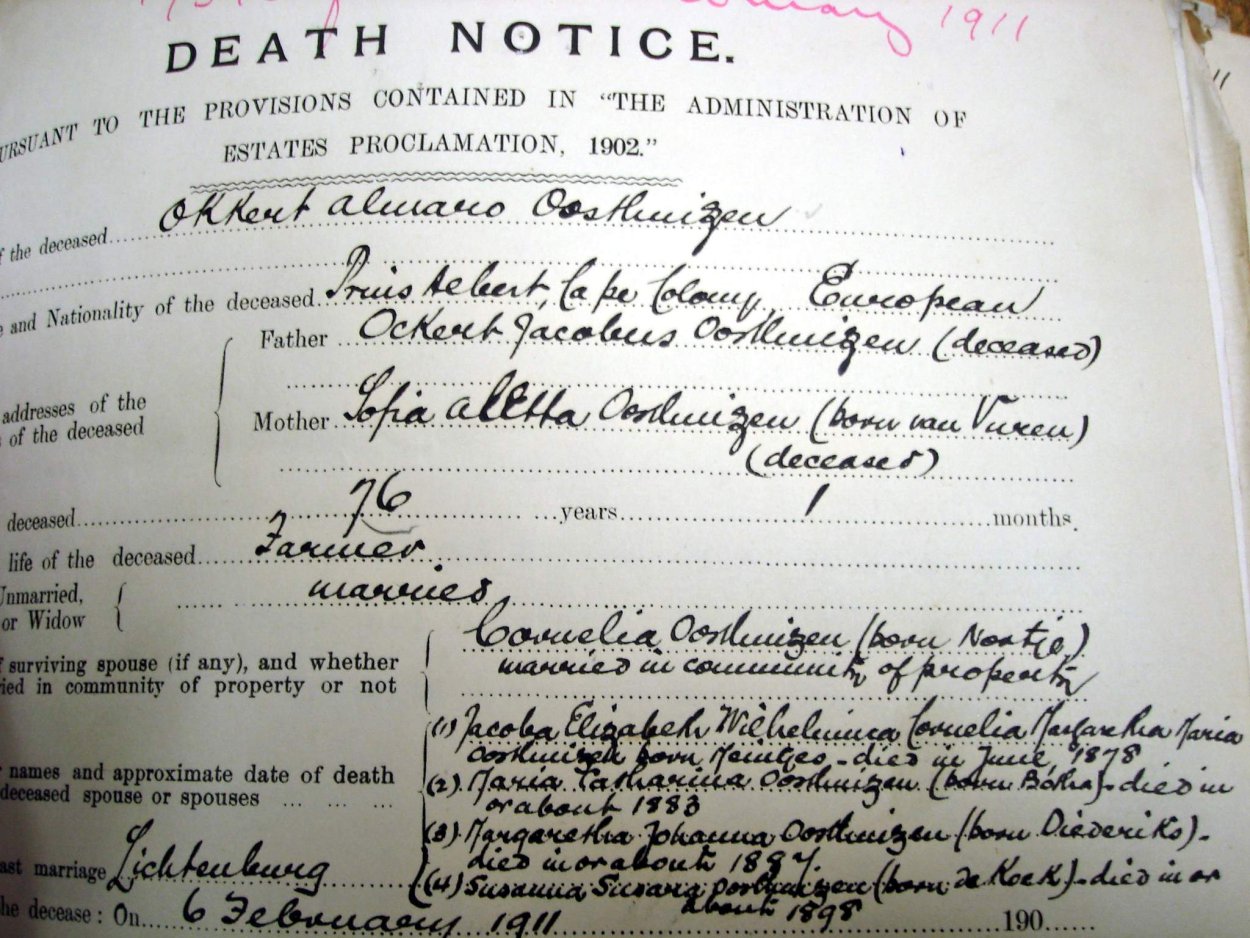 1911
DEATH NOTICE.
PURSUANT TO THE PROVISIONS CONTAINED IN "THE ADMINISTRATION OF
ESTATES PROCLAMATION, 1902."
of the deceased Okkert Almaro Oosthuizen
and Nationality of the deceased Prins Albert, Cape Colony European
Father Ockert Jacobus Oosthuizen (deceased)
addresses of the
of the deceased
Mother Sofia Aletta Oosthuizen (born van Vuren)
(deceased)
deceased 76 years 1 months.
life of the deceased Farmer
Unmarried,
or Widow
married
Cornelia Oosthuizen (born Nortje)
surviving spouse (if any), and whether
married in community of property
ried in community of property or not
(1) Jacoba Elizabeth Wilhelmina Cornelia Margaretha Maria
Oosthuizen born Meintjes - died in June, 1878
names and approximate date of death
(2) Maria Catharina Oosthuizen (born Botha) - died in
deceased spouse or spouses
or about 1883
(3) Margaretha Johanna Oosthuizen (born Diederiks) -
died in or about 1887.
ast marriage Lichtenburg
(4) Susanna Susara Oosthuizen (born de Kock) - died in or
about 1898
he decease: On 6 February 1911 190